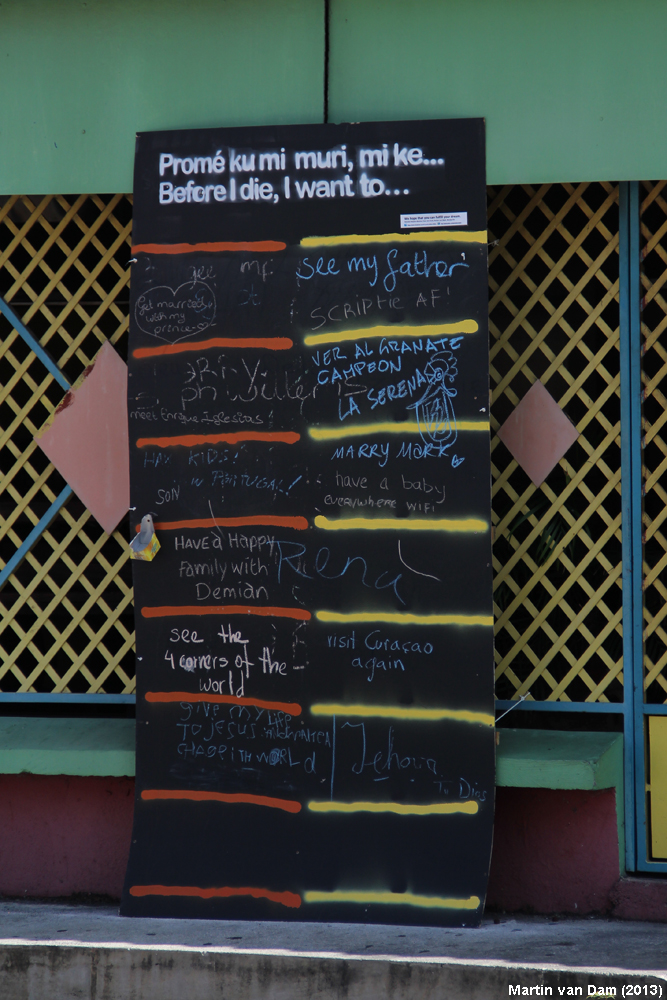 Promé ku mi muri, mi ke...
Before I die, I want to...
see my
get married
with my
prince
see my father
SCRIPTIE AF!
meet Enrique Iglesias
VER AL GRANATE
CAMPEON
LA SERENA
KIDS!
IN PORTUGAL!
SON
MARRY MARK
have a baby
EVERYWHERE WIFI
HAVE a Happy
Family with
Demian
Rena
see the
4 corners of the
world
visit Curaçao
again
give my life
TO JESUS
WORLD
Jehova
Tu Dios
Martin van Dam (2013)